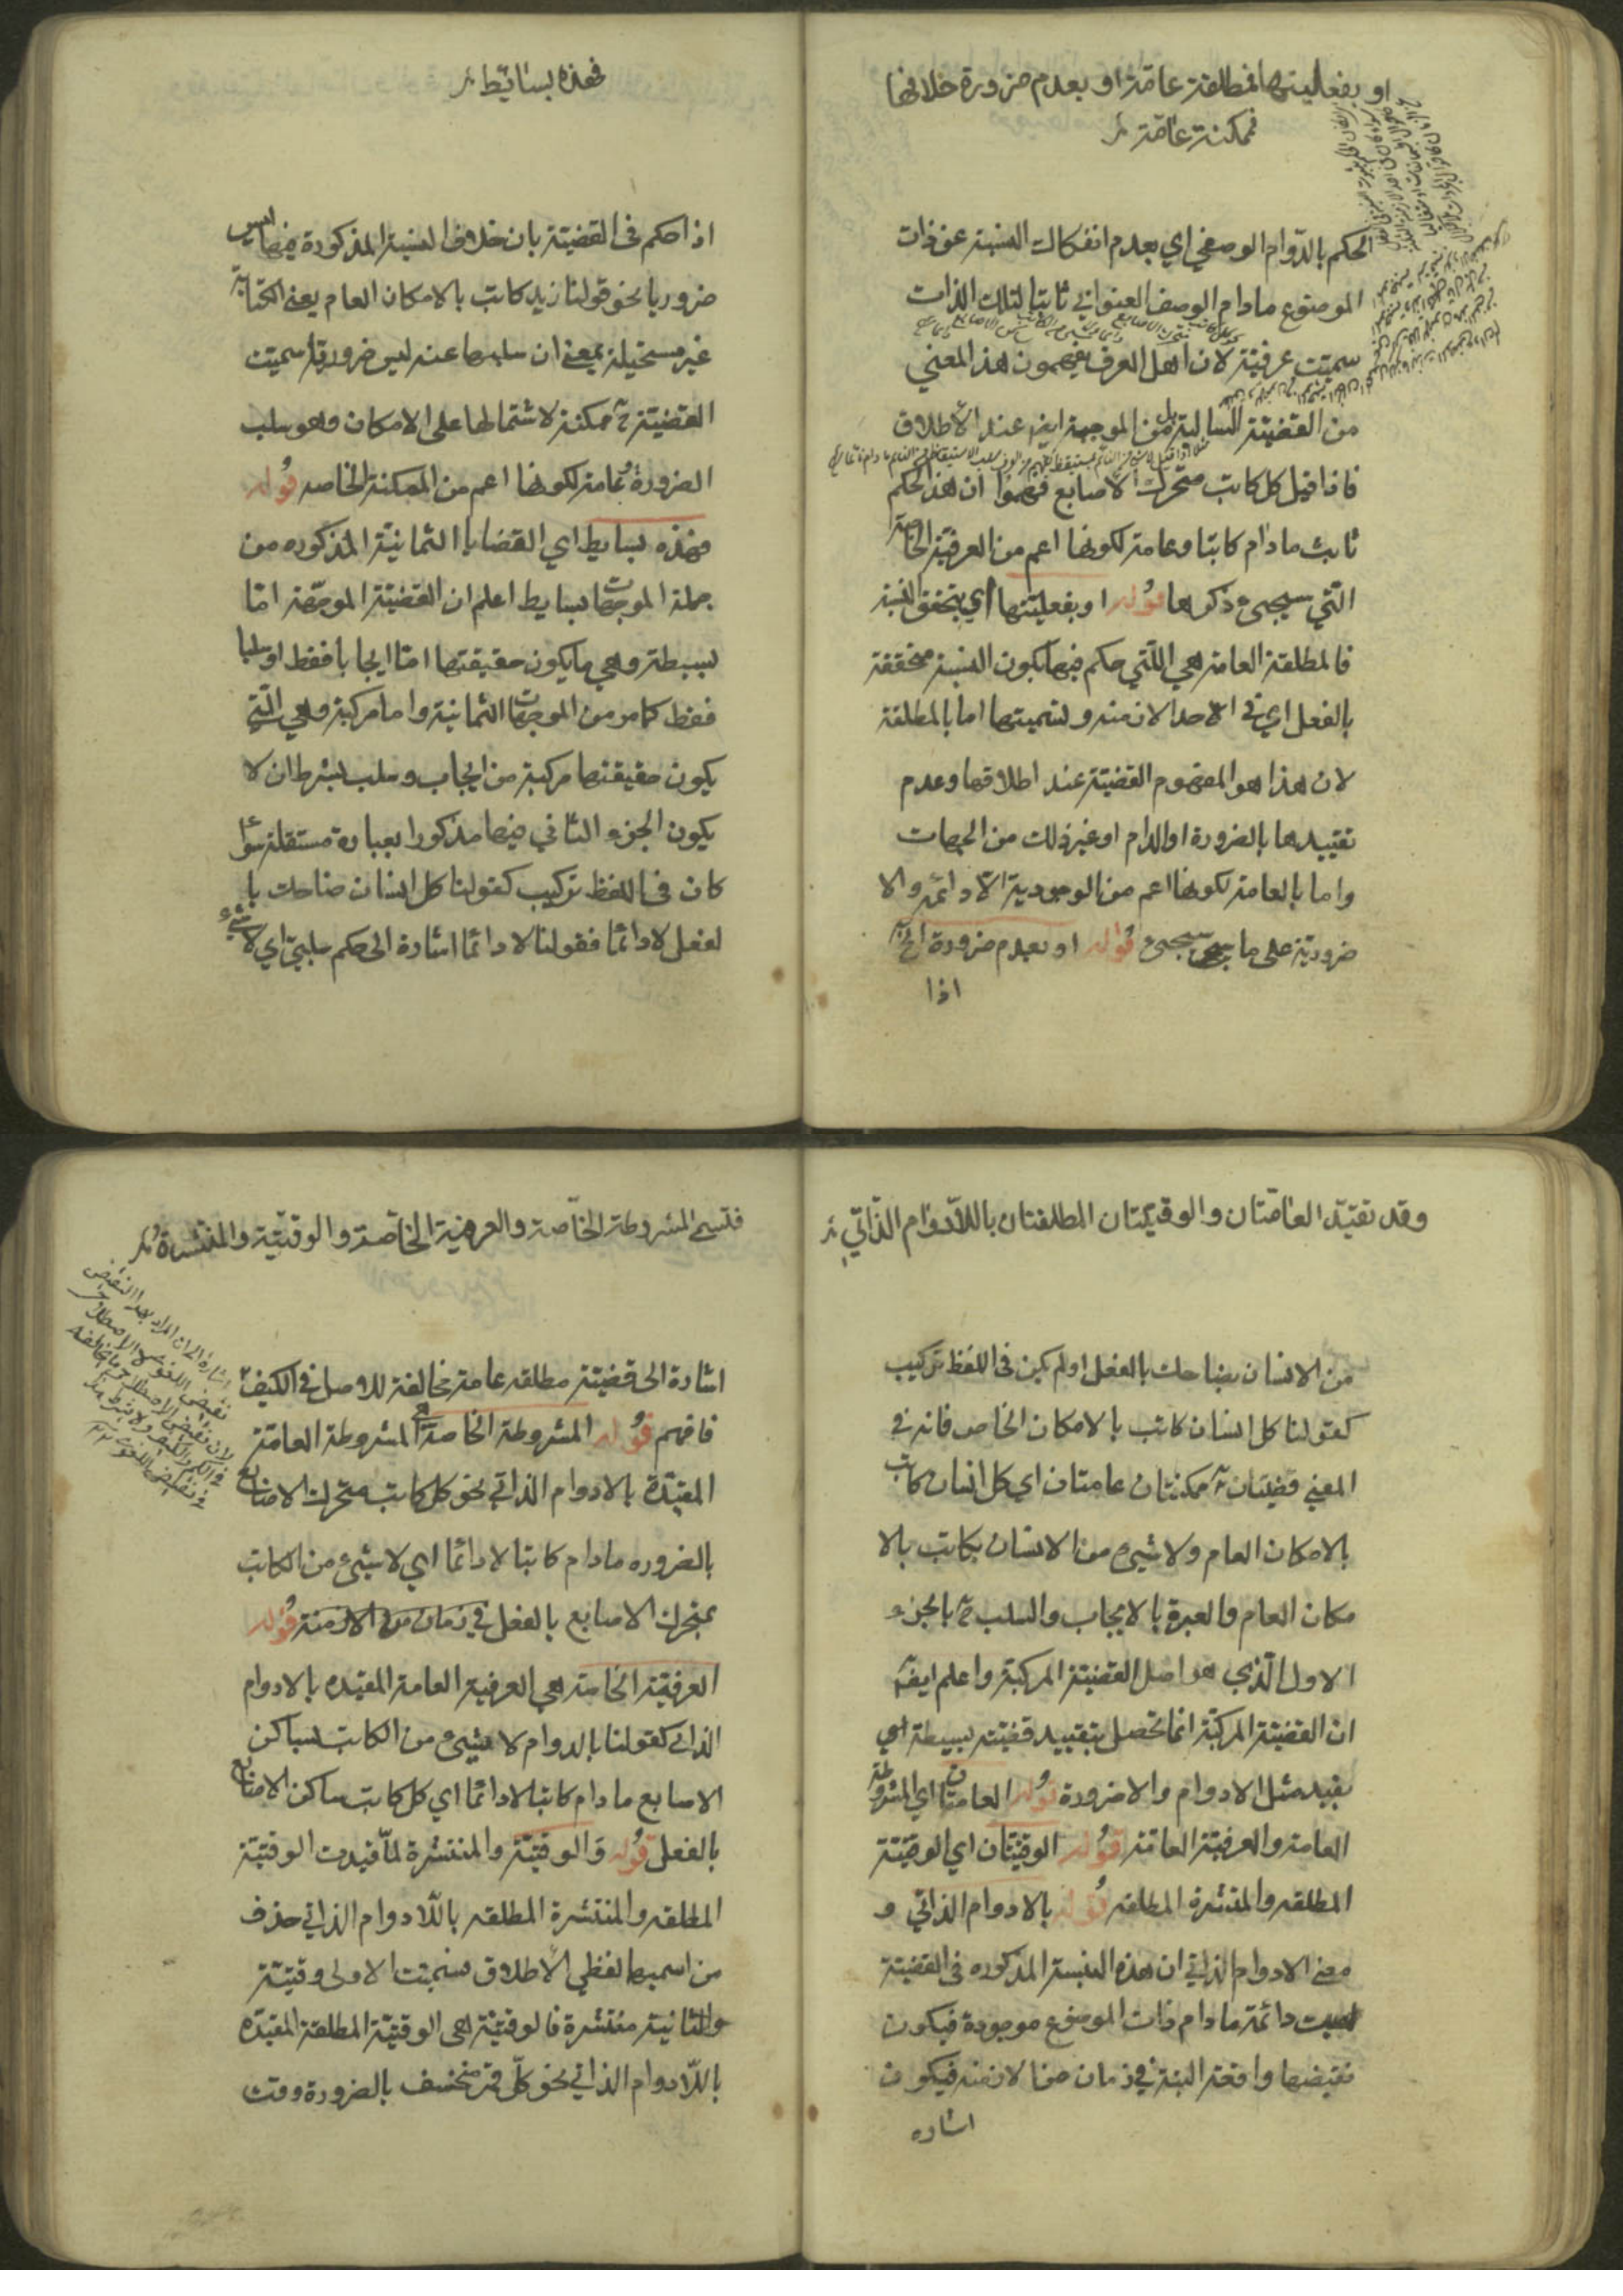 او بفعليتها فمطلقة عامة او بعدم ضرورة خلافها
فممكنة عامة
الحكم بالدوام الوصفي اي بعدم انفكاك النسبة عن ذات
الموضوع مادام الوصف العنواني ثابتا لتلك الذات
سميت عرفية لان اهل العرف يفهمون هذ المعني
من القضية السالبة بل من الموجبة ايضا عند الاطلاق
فاذا قيل كل كاتب متحرك الاصابع فهموا ان هذ الحكم
ثابت مادام كاتبا وعامة لكونها اعم من العرفية الخاصة
التي سيجيء ذكرها قوله او بفعليتها اي بتحقق النسبة
فالمطلقة العامة هي اللتي حكم فيها بكون النسبة متحققة
بالفعل اي في احد الازمنة وتسميتها اما بالمطلقة
لان هذا هو المفهوم القضية عند اطلاقها وعدم
تقييدها بالضرورة او الدوام او غير ذلك من الجهات
واما بالعامة لكونها اعم من الوجودية الادائمة والا
ضرورية على ما سيجيء قوله او بعدم ضرورة الخ
اذا
فهذه بسائط
اذا حكم في القضية بان خلاف النسبة المذكورة فيها ليس
ضروريا نحو قولنا زيد كاتب بالامكان العام يعني الكتابة
غير مستحيلة بمعني ان سلبها عنه ليس ضروريا سميت
القضية ح ممكنة لاشتمالها على الامكان وهو سلب
الضرورة وعامة لكونها اعم من الممكنة الخاصه قوله
فهذه بسايط اي القضايا الثمانية المذكوره من
جملة الموجهات بسايط اعلم ان القضية الموجهة اما
بسيطة وهي مايكون حقيقتها اما ايجابا فقط او سلبا
فقط كما مر من الموجهات الثمانية واما مركبة وهي التي
يكون حقيقتها مركبة من ايجاب وسلب بشرط ان لا
يكون الجزء الثاني فيها مذكورا بعبارة مستقلة سواء
كان في اللفظ تركيب كقولنا كل انسان ضاحك با
لفعل لادائما فقولنا لادائما اشارة الى حكم سلبي اي لا شيء
وقد تقيد العامتان والوقتيتان المطلقتان باللادوام الذاتي
من الانسان بضاحك بالفعل او لم يكن في اللفظ تركيب
كقولنا كل انسان كاتب بالامكان الخاص فانه في
المعني قضيتان ممكنتان عامتان اي كل انسان كاتب
بالامكان العام ولا شيء من الانسان بكاتب بالا
مكان العام والعبرة بالايجاب والسلب ح بالجزء
الاول الذي هو اصل القضية المركبة واعلم ايضا
ان القضية المركبة انما تحصل بتقييد قضية بسيطة اي
بقيد مثل الادوام والاضرورة قوله العامتان اي المشروطة
العامة والعرفية العامة قوله الوقتيتان اي الوقتية
المطلقه والمنتشرة المطلقه قوله بالادوام الذاتي و
معني الادوام الذاتي ان هذه النسبة المذكوره في القضية
ليست دائمة مادام ذات الموضوع موجودة فيكون
نقيضها واقعة البتة في زمان من الازمنة فيكون
اشاره
فتسمى المشروطة الخاصة والعرفية الخاصة والوقتية والمنتشرة
اشارة الى قضية مطلقه عامة مخالفة للاصل في الكيف
فافهم قوله المشروطة الخاصة هي المشروطة العامة
المقيدة بالادوام الذاتي نحو كل كاتب متحرك الاصابع
بالضروره مادام كاتبا لادائما اي لا شيء من الكاتب
بمتحرك الاصابع بالفعل في زمان من الازمنة قوله
العرفية الخاصة هي العرفية العامة المقيده بالادوام
الذاتي كقولنا بالدوام لا شيء من الكاتب بساكن
الاصابع مادام كاتبا لادائما اي كل كاتب ساكن الاصابع
بالفعل قوله والوقتية والمنتشرة لما قيدت الوقتية
المطلقه والمنتشرة المطلقه باللادوام الذاتي حذف
من اسميهما لفظي الاطلاق فسميت الاولى وقتية
والثانية منتشرة فالوقتية هي الوقتية المطلقة المقيده
باللادوام الذاتي نحو كل قمر منخسف بالضرورة وقت